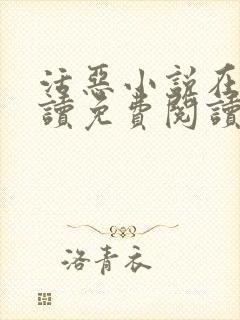 活惡小說在
讀免費閱讀
洛青衣